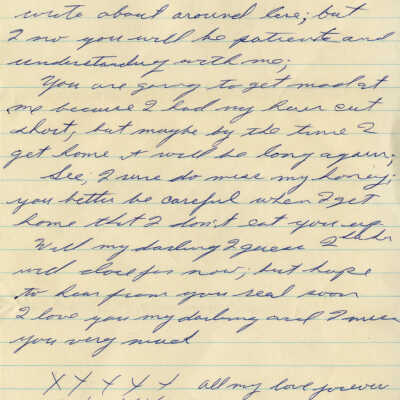 write about around here; but
I no you will be patient and
understanding with me;
You are going to get mad at
me because I had my hair cut
short, but maybe by the time I
get home it will be long again;
See, I sure do miss my honey;
you better be careful when I get
home that I don't eat you up
Well my darling I guess I
will close for now; but hope
to hear from you real soon
I love you my darling and I miss
you very much
X X X X X all my love forever